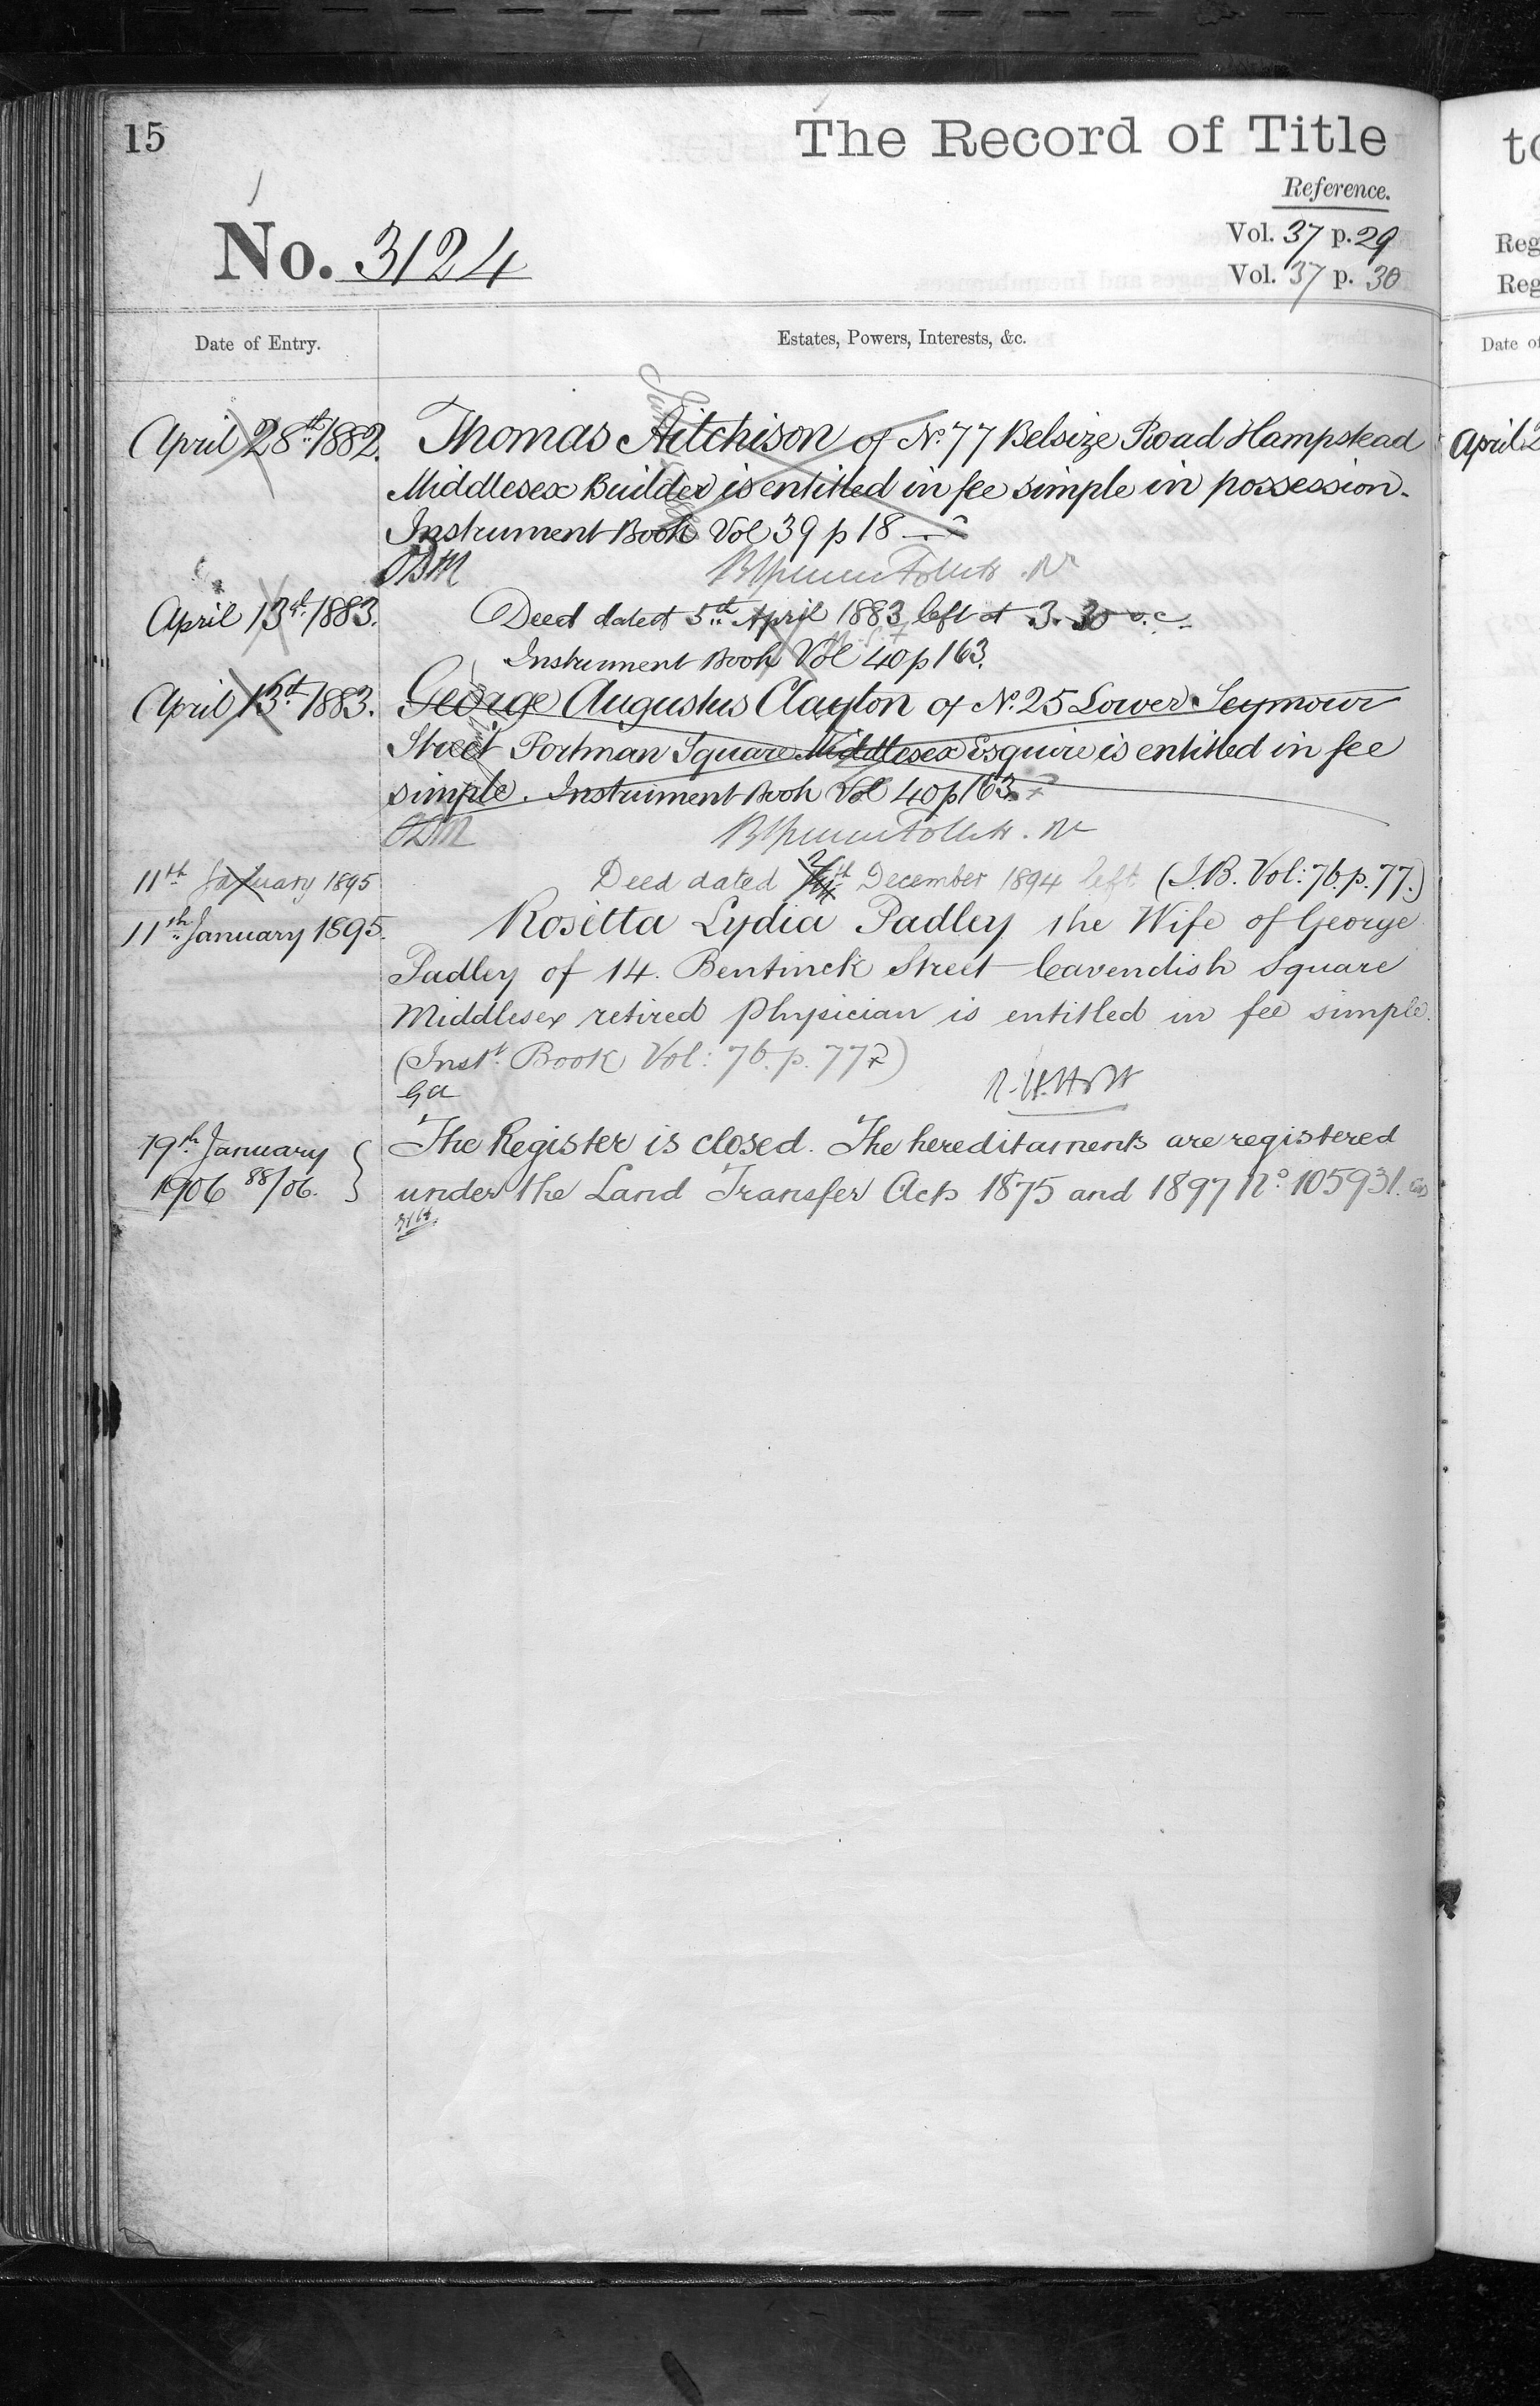 15
The Record of Title
Reference.
No. 3124
Vol. 37 p. 29
Vol. 37 p. 30
Date of Entry.
Estates, Powers, Interests, &c.
April 28th 1882. Thomas Aitchison of No. 77 Belsize Road Hampstead
Middlesex Builder is entitled in fee simple in possession.
Instrument Book Vol 39 p 18
April 13th 1883. Deed dated 5th April 1883 left at 3.30 o.c.
Instrument Book Vol 40 p 163.
April 13th 1883. George Augustus Clayton of No. 25 Lower Seymour
Street Portman Square Middlesex Esquire is entitled in fee
simple. Instrument Book Vol 40 p 163
11th January 1895 Deed dated December 1894 left (I.B. Vol: 76. p. 77.)
11th January 1895. Rosetta Lydia Padley the Wife of George
Padley of 14. Bentinck Street Cavendish Square
Middlesex retired Physician is entitled in fee simple.
(Inst. Book Vol: 76. p. 77)
Ga
19th January The Register is closed. The hereditaments are registered
1906 88/06. under the Land Transfer Acts 1875 and 1897 No. 105931.
to
Reg
Reg
Date of
April 2